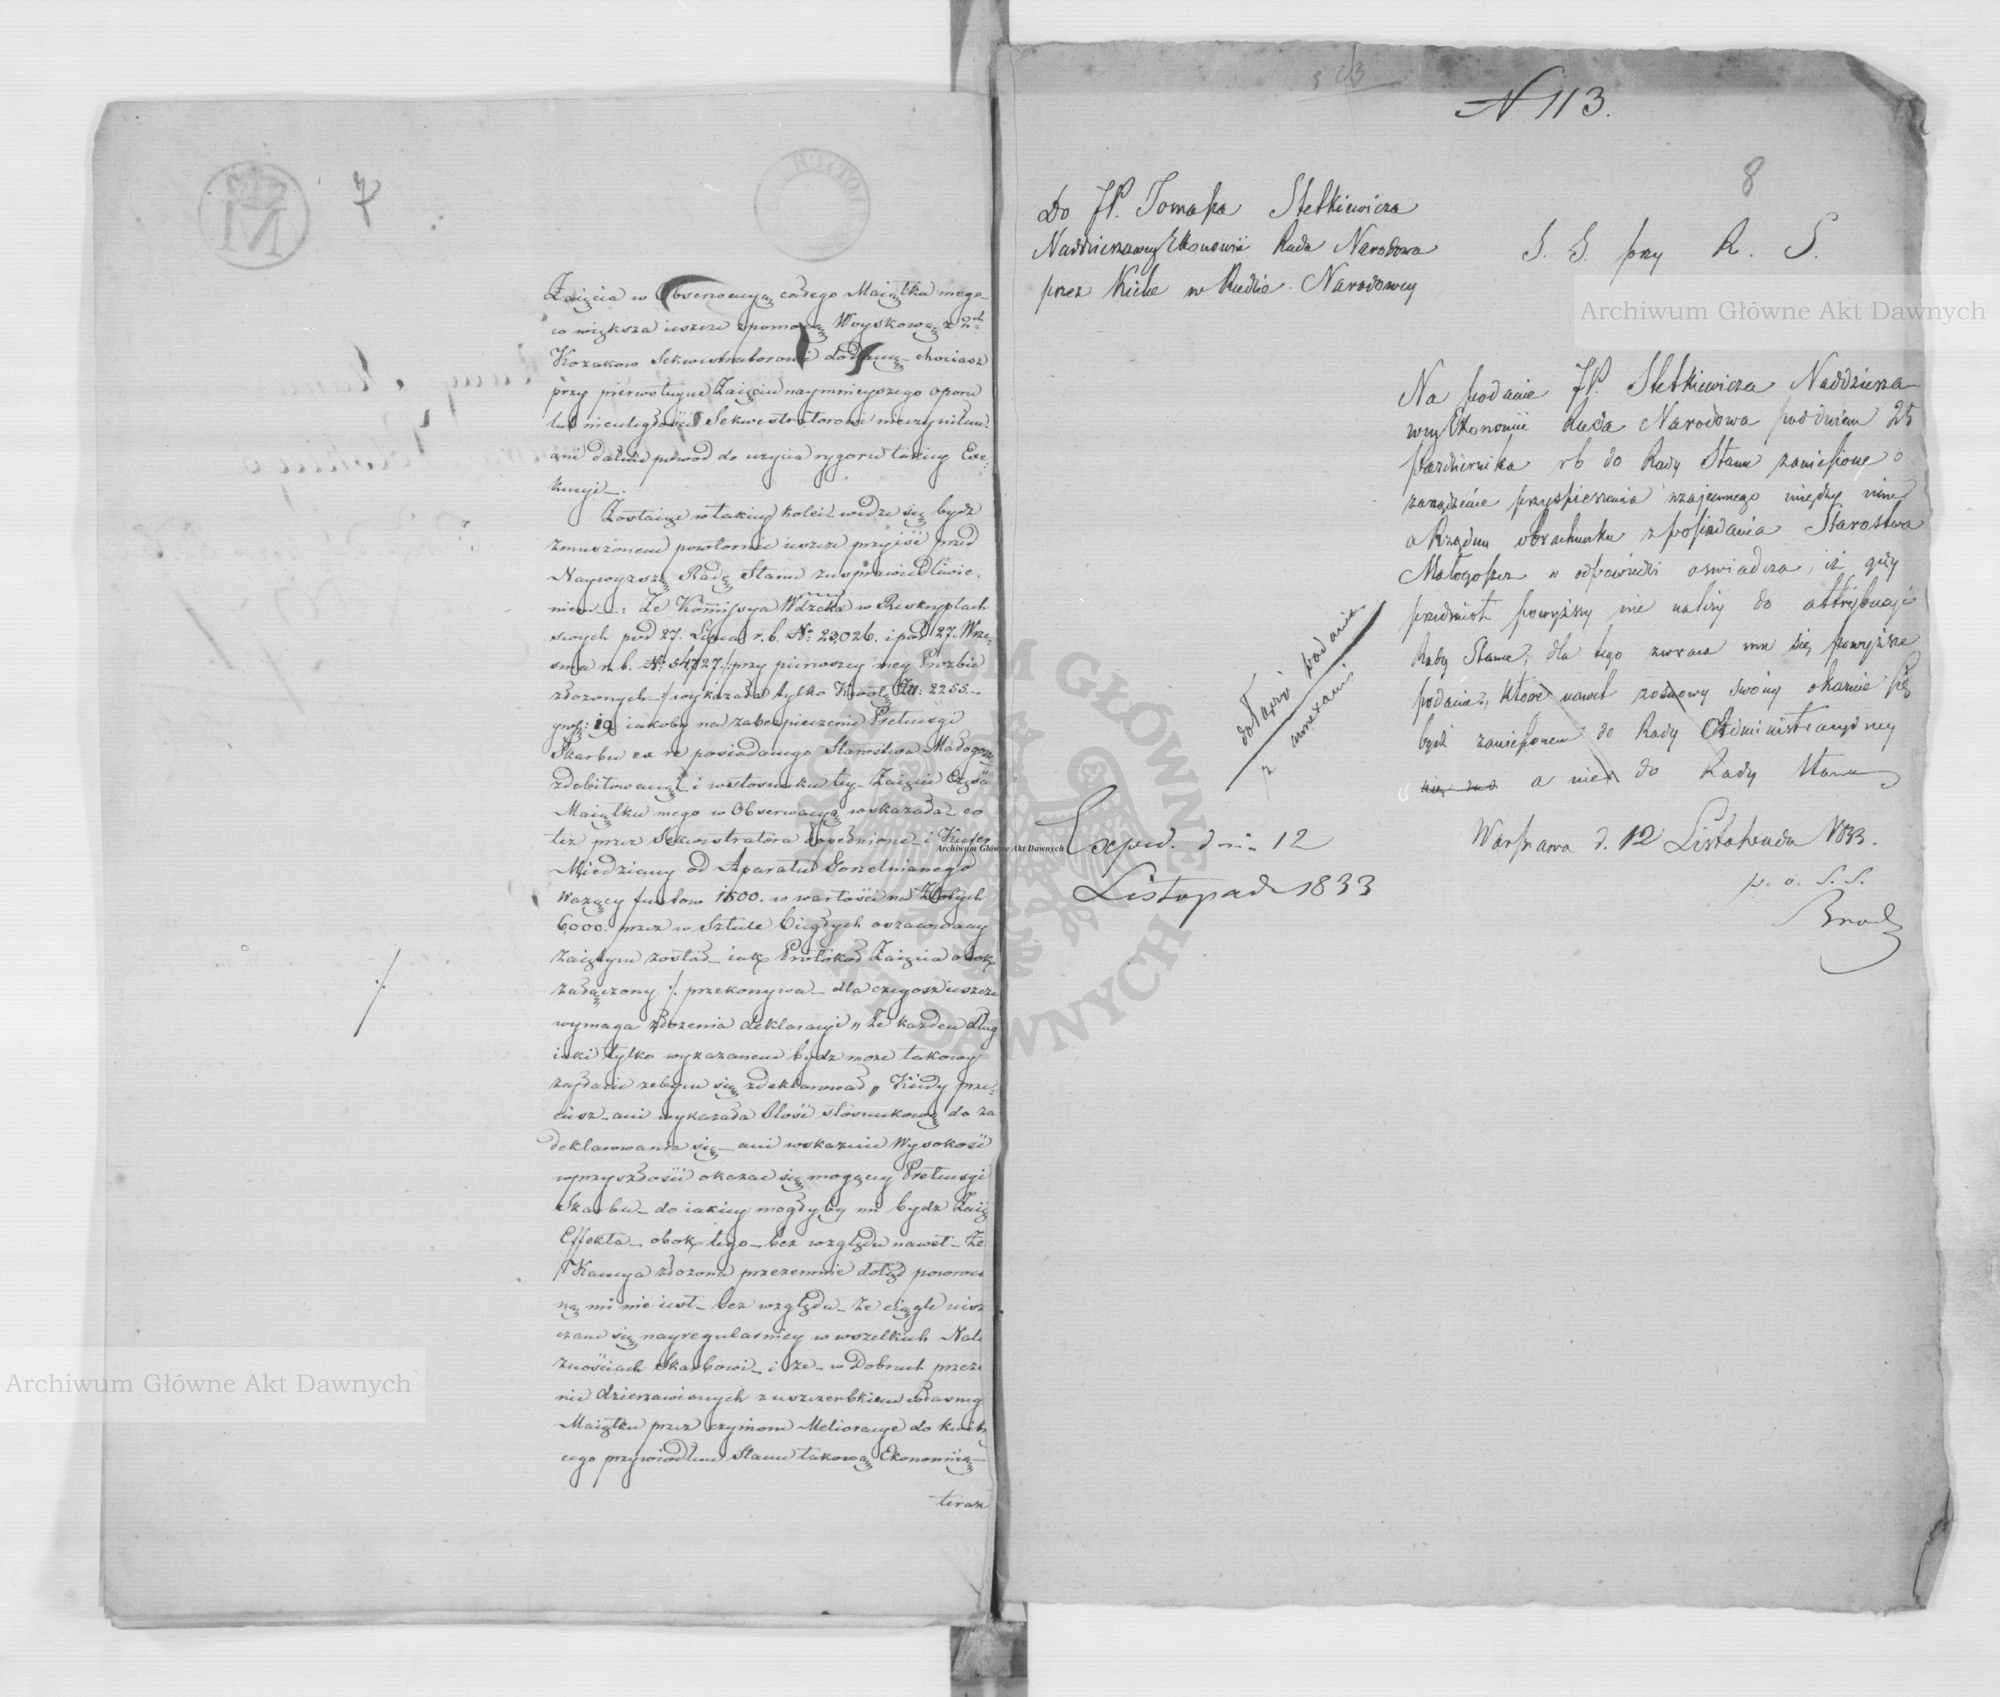 7
Zaięcia w Obserwacyą całego Maiątku mego
co większa ieszcze z pomocą Woyskową z 2ch
Kozaków Sekwestratorowi dodaną – chociasz
przy pierwotnym Zaięciu naymnieyszego oporu
lub nieuległości Sekwestratorowi nieczyniłem
ani dałem powód do użycia rygoru takiey Exe-
kucyi –
Zostaiąc w takiey kolei widzę się bydź
zmuszonem powtornie ieszcze przyiść przed
Naywyższą Radę Stanu z usprawiedliwie-
niem –: Że Kommissya Wdzka w Reskryptach
swych pod 27. Lipca r. b. No 29,026. i pod 27. Wrze-
śnia r. b. No 54727. /: przy pierwszey mey Prozbie
złożonych :/ wykazała tylko Kwotę Zł: 2255.
gr: 19 iakoby na zabezpieczenie Pretensyi
Skarbu ex re posiadanego Starostwa Małogosz
zdebitowaną i w stosunku tey Zaięcie Części
Maiątku mego w Obserwacyą wskazała co
też przez Sekwestratora dopełnione – i Kufer
Miedziany od Aparatu Gorzelnianego
Ważący funtów 1500. w wartości na Złotych
6,000. przez w Sztuce biegłych oszacowany
Zaiętym został – iak Protokół Zaięcia obok
załączony ./. przekonywa – dla czegosz ieszcze
wymaga złożenia deklaracyi „ Że każden Dług
iaki tylko wykazanem bydz może takowy
zapłacić żebym się zdeklarował „ Kiedy prze-
ciesz – ani wykazała Ilość stosunkową do za
deklarowania się – ani wskaznie Wysokość
w przyszłości okazać się mogącey Pretensyi
Skarbu – do iakiey mogłyby mi bydz Zaięte
Effekta – obok tego – bez względu nawet – Że
Kaucya złożona przezemnie dotąd powroco
ną mi nie iest – bez względu – że ciągle uisz
czam się nayregularniey w wszelkich Nale
żnościach Skarbowi – i że – w Dobrach przeze
nie dzierzawionych z uszczerbkiem własnego
Maiątku przez czynione Melioracye do kwitn
cego przywiodłem Stanu takową Ekonomią –
teraz
./.
N 113.
8
Do JP. Tomasza Stetkiewicza
Naddzierzawcy Ekonomii Ruda Narodowa
przez Kielce w Rudzie Narodowey
S. G. przy R. S.
Na podanie JP. Stetkiewicza Naddzierza
wcy Ekonomii Ruda Narodowa pod dniem 25
Pazdziernika rb do Rady Stanu zaniesione o
zarządzenie przyspieszenia wzajemnego między nim
a Rządem obrachunku z posiadania Starostwa
Małogoszcz w odpowiedzi oswiadcza, iż gdy
przedmiot powyższy nie należy do attrybucyi
Rady Stanu, dla tego zwraca mu się powyższe
podanie, które nawet z osnowy swoiej okazuie się
bydź zaniesionem do Rady Administracyiney
a nie do Rady Stanu
Warszawa d. 12 Listopada 1833.
p. o. S. S.
dołączyć podanie
z annexami
Exped. dnia 12
Listopada 1833
Archiwum Główne Akt Dawnych
Archiwum Główne Akt Dawnych
Archiwum Główne Akt Dawnych
ARCHIWUM GŁÓWNE AKT DAWNYCH